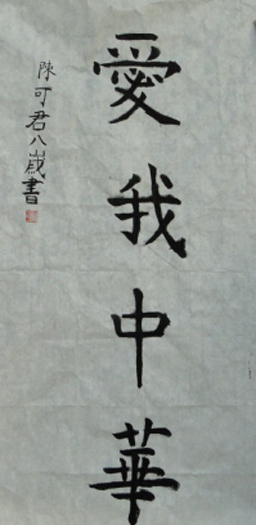 愛我中華
陳可君八歲書